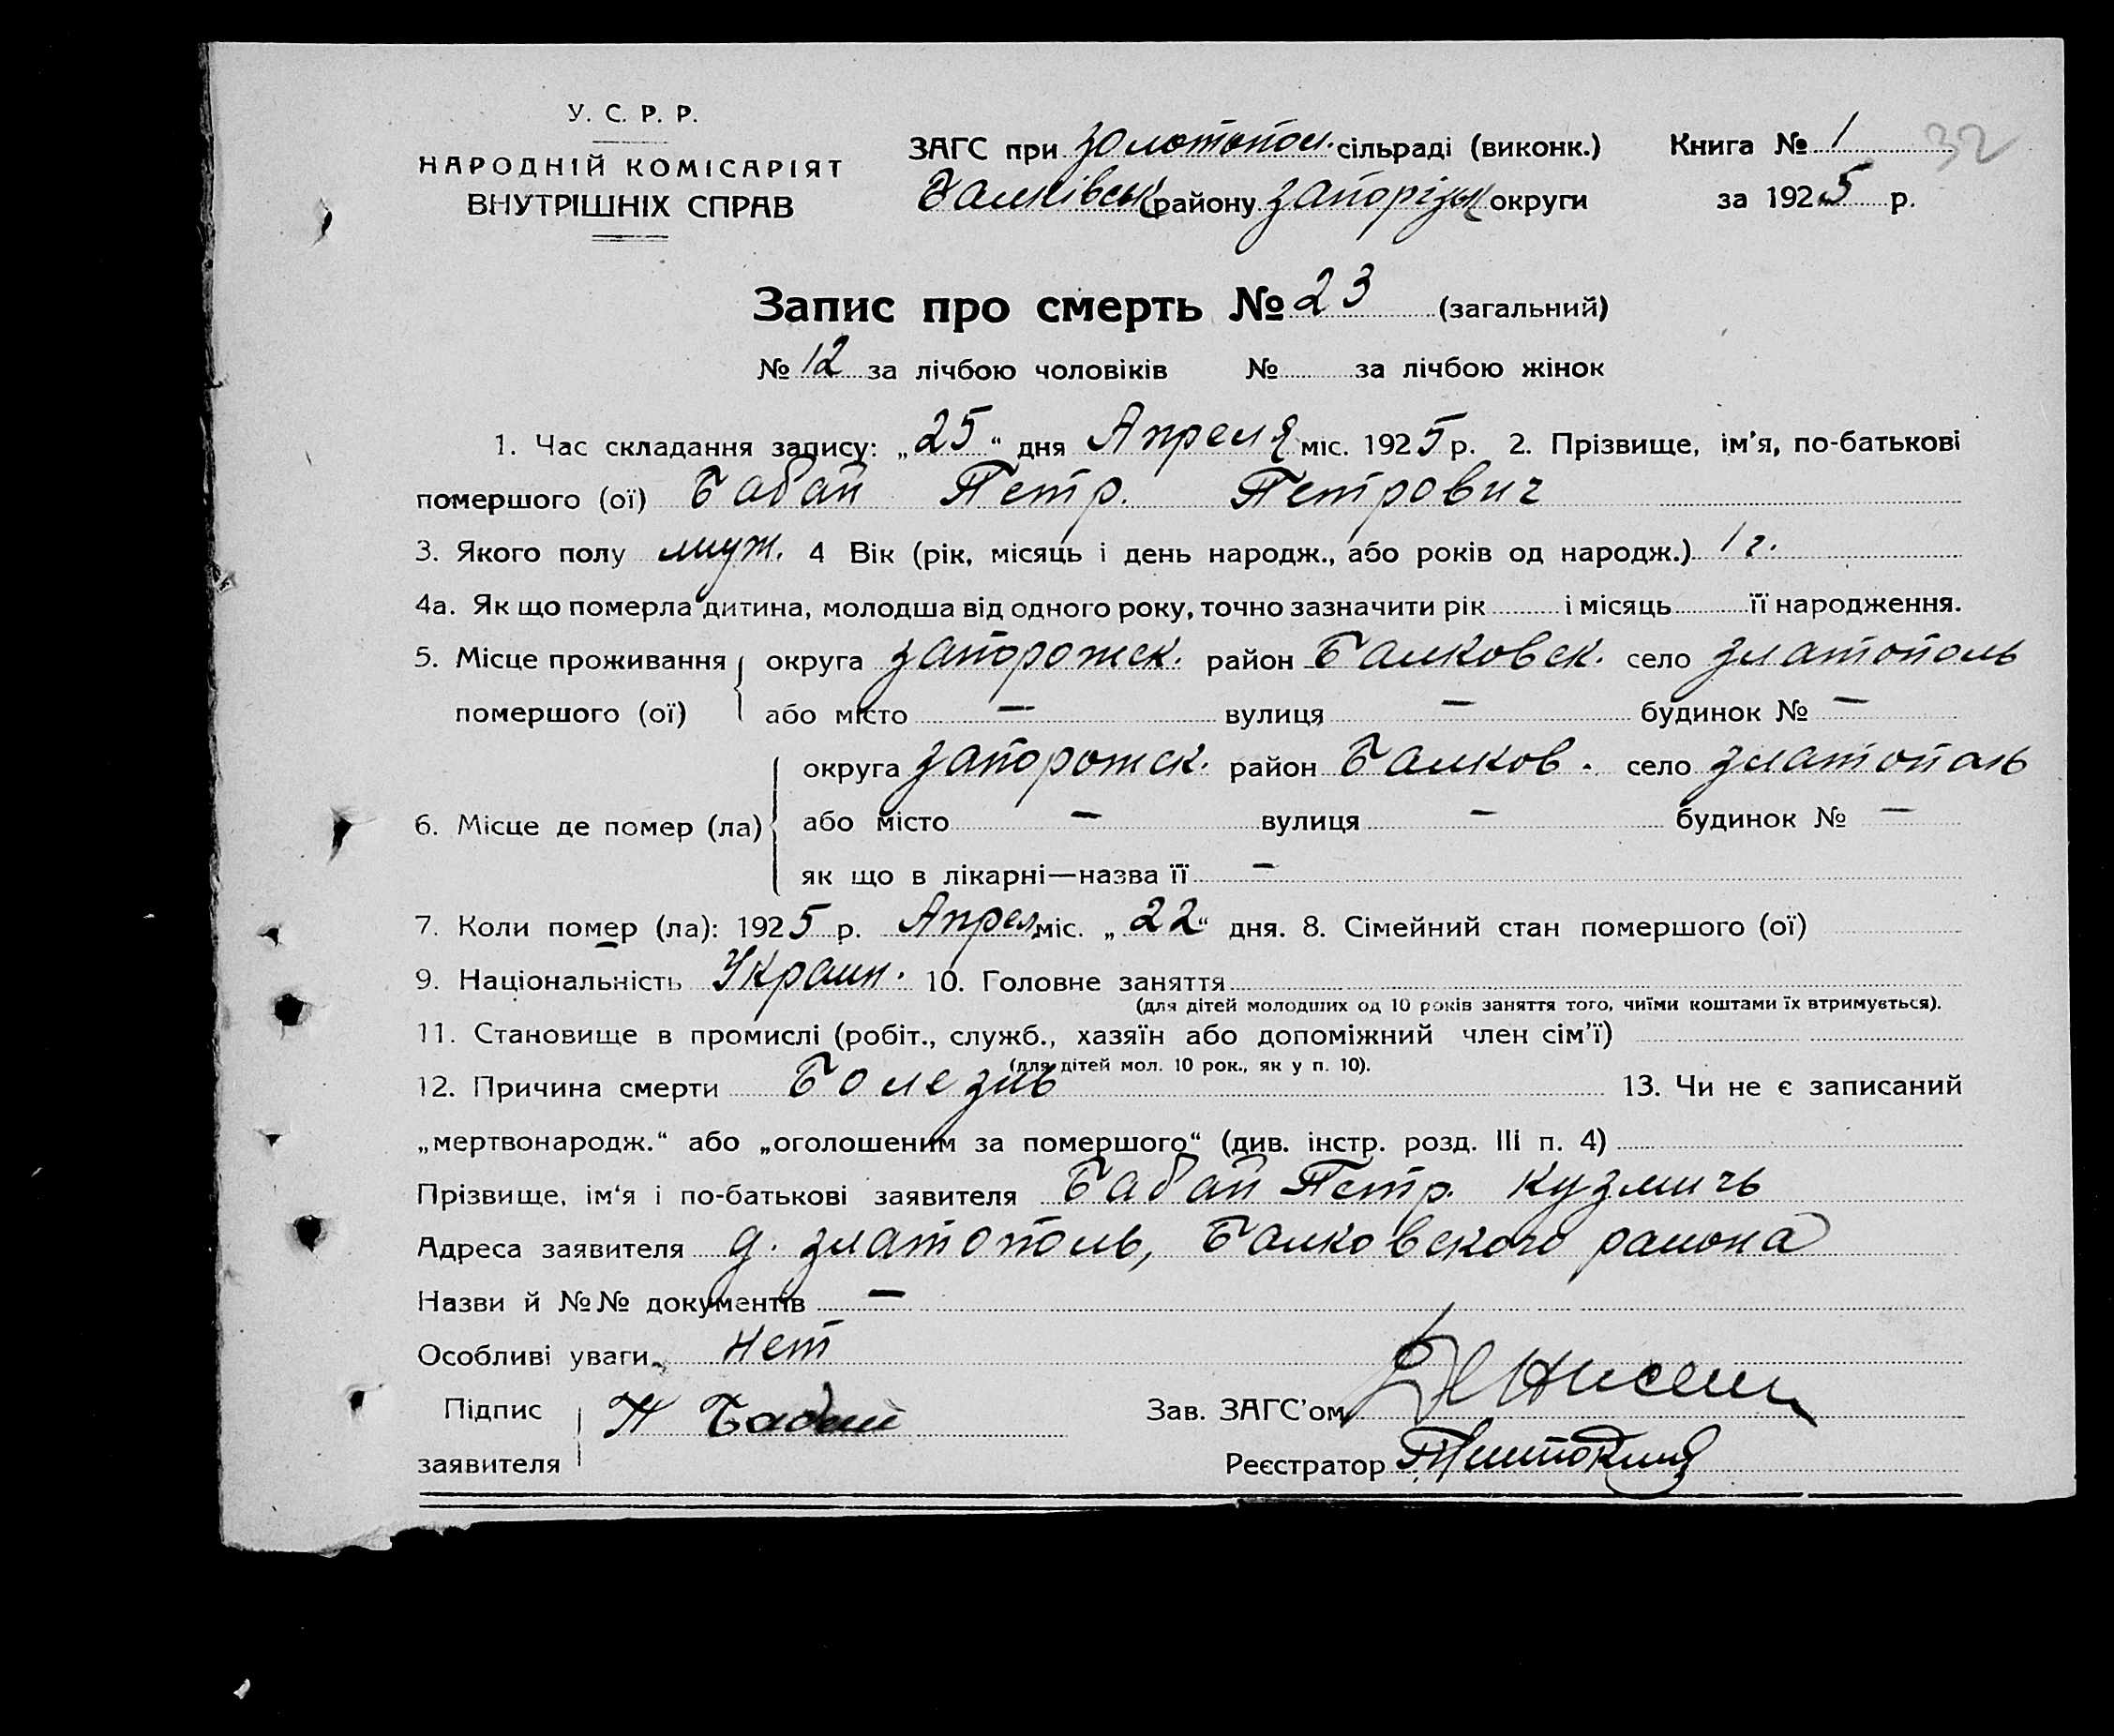 У. С. Р. Р.
НАРОДНІЙ КОМІСАРІЯТ
ВНУТРІШНІХ СПРАВ
ЗАГС при золотопол. сільраді (виконк.)
Балківськ району запорізьк округи
Книга № 1 32
за 1925 р.
Запис про смерть № 23 (загальний)
№ 12 за лічбою чоловіків № за лічбою жінок
1. Час складання запису: „25“ дня Апреля міс. 1925 р. 2. Прізвище, ім'я, по-батькові
помершого (ої) Бабай Петр. Петрович
3. Якого полу муж. 4 Вік (рік, місяць і день народж., або років од народж.) 1 г.
4а. Як що померла дитина, молодша від одного року, точно зазначити рік і місяць її народження.
5. Місце проживання помершого (ої) округа запорожск. район Балковск. село златополь
або місто — вулиця — будинок № —
6. Місце де помер (ла) округа запорожск. район Балков. село златополь
або місто — вулиця — будинок № —
як що в лікарні—назва її —
7. Коли помер (ла): 1925 р. Апрел міс. „22“ дня. 8. Сімейний стан помершого (ої)
9. Національність Украин. 10. Головне заняття
(для дітей молодших од 10 років заняття того, чиїми коштами їх втримується).
11. Становище в промислі (робіт., служб., хазяїн або допоміжний член сім'ї)
(для дітей мол. 10 рок., як у п. 10).
12. Причина смерти Болезнь 13. Чи не є записаний
„мертвонародж.“ або „оголошеним за помершого“ (див. інстр. розд. III п. 4)
Прізвище, ім'я і по-батькові заявителя Бабай Петр. Кузмичь
Адреса заявителя д. златополь, Балковского раиона
Назви й №№ документів —
Особливі уваги нет
Підпис заявителя П Бабай
Зав. ЗАГС'ом
Реєстратор